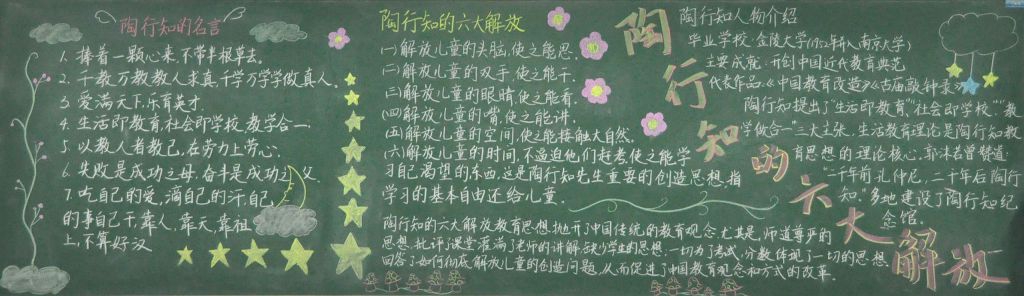 陶行知的名言
1. 捧着一颗心来,不带半根草去。
2. 千教万教教人求真,千学万学学做真人。
3. 爱满天下,乐育英才.
4. 生活即教育,社会即学校,教学合一.
5. 以教人者教己,在劳力上劳心.
6. 失败是成功之母,奋斗是成功之父
7. 吃自己的爱,滴自己的汗自己
的事自己干,靠人,靠天,靠祖
上,不算好汉
陶行知的六大解放
(一)解放儿童的头脑,使之能思.
(二)解放儿童的双手,使之能干.
(三)解放儿童的眼睛,使之能看.
(四)解放儿童的嘴,使之能讲.
(五)解放儿童的空间,使之能接触大自然.
(六)解放儿童的时间,不逼迫他们赶考,使之能学
习自己渴望的东西,这是陶行知先生重要的创造思想,指
学习的基本自由还给儿童.
陶行知的六大解放教育思想抛开中国传统的教育观念尤其是,师道尊严的
思想,批评了课堂灌满了老师的讲解,缺少学生的思想.一切为了考试,分数体现了一切的思想.
回答了如何彻底解放儿童的创造问题.从而促进了中国教育观念和方式的改革.
陶行知的六大解放
陶行知人物介绍
毕业学校:金陵大学(1952年并入南京大学)
主要成就:开创中国近代教育典范
代表作品:《中国教育改造》《古庙敲钟录》
陶行知提出了"生活即教育""社会即学校""教
学做合一"三大主张,生活教育理论是陶行知教
育思想的理论核心,郭沫若曾赞道
"二千年前孔仲尼,二千年后陶行
知."多地建设了陶行知纪
念馆.